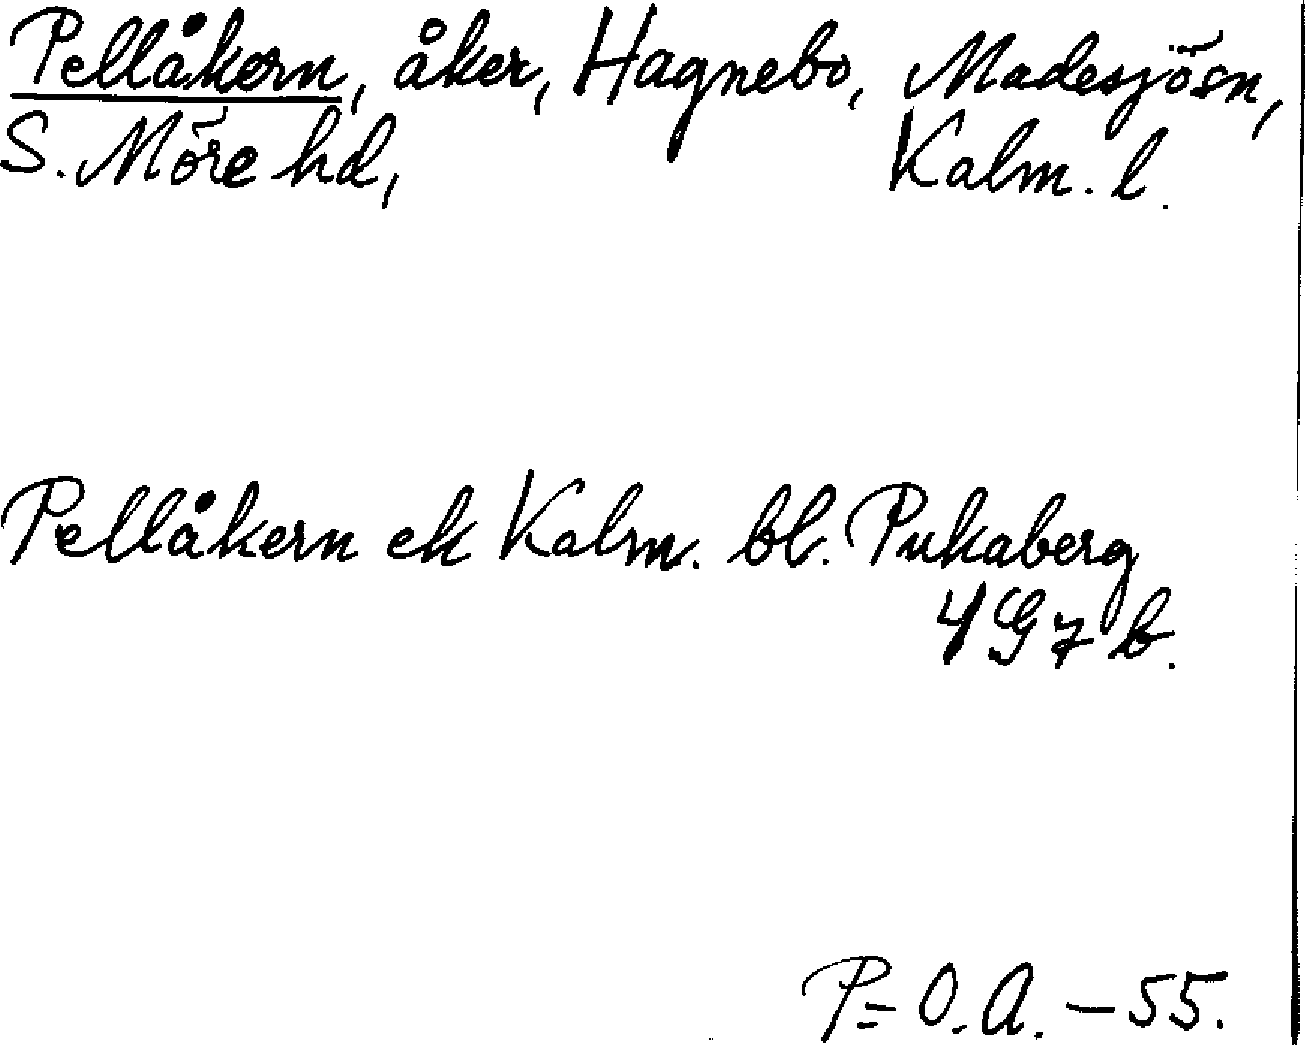 Pellåkern, åker, Hagnebo, Madesjösn,
S. Möre hd, Kalm. l.
Pellåkern ek Kalm. bl. Pukaberg
4G7b.
P= O.A. - 55.